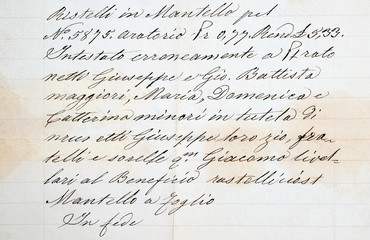 Restelli in Mantello pel
N.° 5875. aratorio Pr 0,77. Rend £ 5,33.
Intestato erroneamente a
netti Giuseppe e Gio. Battista
maggiori, Maria, Domenica e
Catterina minori in tutela di
etti Giuseppe loro zio, fra
telli e sorelle qm Giacomo livel-
lari al Beneficio
Mantello a Foglio
In fede